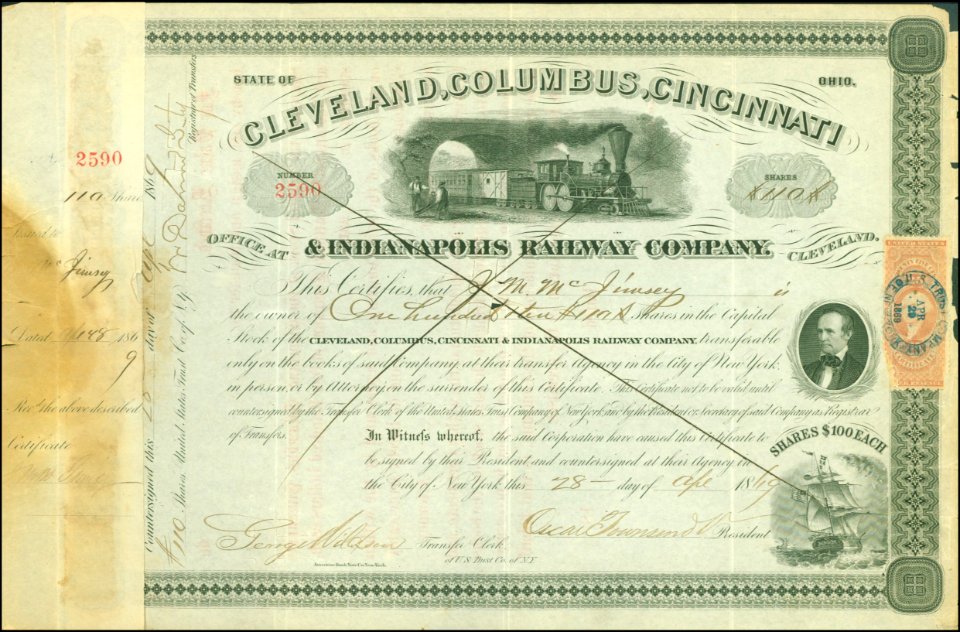 2590
110 Shares
Issued to
Mc Jimsey
Dated Apl 28 1869
Rec'd the above described
Certificate
Countersigned this 28 day of Apl 1869
110 Shares United States Trust Co. of N.Y.
Registered Transfers
STATE OF OHIO.
CLEVELAND, COLUMBUS, CINCINNATI
NUMBER
2590
SHARES
$110$
OFFICE AT & INDIANAPOLIS RAILWAY COMPANY. CLEVELAND.
This Certifies, that J. M. Mc Jimsey is
the owner of One hundred & ten $110$ Shares in the Capital
Stock of the CLEVELAND, COLUMBUS, CINCINNATI & INDIANAPOLIS RAILWAY COMPANY, transferable
only on the books of said Company, at their transfer Agency in the City of New York,
in person, or by Attorney, on the surrender of this Certificate. This Certificate not to be valid until
countersigned by the Transfer Clerk of the United States Trust Company of New York, and by the President or Secretary of said Company as Registrar
of Transfers.
In Witness whereof, the said Corporation have caused this Certificate to
be signed by their President and countersigned at their Agency in
the City of New York this 28 day of Apl 1869
SHARES $100 EACH
Oscar Townsend President
George Wildsen Transfer Clerk
of U.S. Trust Co. of N.Y.
American Bank Note Co. New York.
APR
28
1869